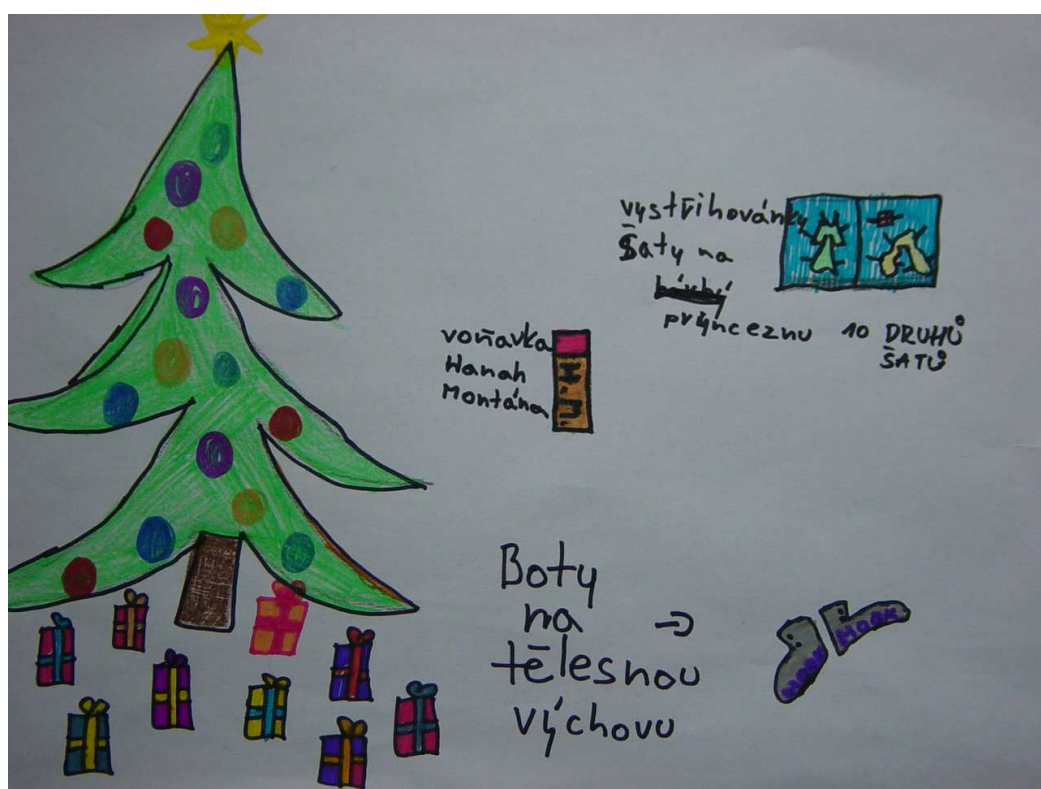 vystřihovánky
šaty na
princeznu 10 DRUHŮ
ŠATŮ
voňavka
Hanah
Montána
H.M.
Boty
na →
tělesnou
výchovu